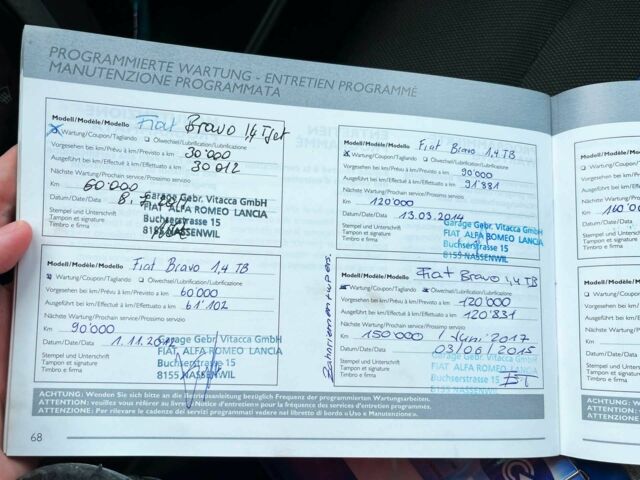 PROGRAMMIERTE WARTUNG - ENTRETIEN PROGRAMMÉ
MANUTENZIONE PROGRAMMATA
Modell/Modèle/Modello Fiat Bravo 1,4 TJet
Wartung/Coupon/Tagliando Ölwechsel/Lubrification/Lubrificazione
Vorgesehen bei km/Prévu à km/Previsto a km 30'000
Ausgeführt bei km/Effectué à km/Effettuato a km 30'012
Nächste Wartung/Prochain service/Prossimo servizio
Km 60'000
Datum/Date/Data
Stempel und Unterschrift
Tampon et signature
Timbro e firma
Garage Gebr. Vitacca GmbH
FIAT ALFA ROMEO LANCIA
Buchserstrasse 15
8155 NASSENWIL
Modell/Modèle/Modello Fiat Bravo 1,4 TB
Wartung/Coupon/Tagliando Ölwechsel/Lubrification/Lubrificazione
Vorgesehen bei km/Prévu à km/Previsto a km 60'000
Ausgeführt bei km/Effectué à km/Effettuato a km 61'102
Nächste Wartung/Prochain service/Prossimo servizio
Km 90'000
Datum/Date/Data 1.11.2012
Stempel und Unterschrift
Tampon et signature
Timbro e firma
Garage Gebr. Vitacca GmbH
FIAT ALFA ROMEO LANCIA
Buchserstrasse 15
8155 NASSENWIL
Modell/Modèle/Modello Fiat Bravo 1,4 TB
Wartung/Coupon/Tagliando Ölwechsel/Lubrification/Lubrificazione
Vorgesehen bei km/Prévu à km/Previsto a km 90'000
Ausgeführt bei km/Effectué à km/Effettuato a km 91'881
Nächste Wartung/Prochain service/Prossimo servizio
Km 120'000
Datum/Date/Data 13.03.2014
Stempel und Unterschrift
Tampon et signature
Timbro e firma
Garage Gebr. Vitacca GmbH
FIAT ALFA ROMEO LANCIA
Buchserstrasse 15
8155 NASSENWIL
Modell/Modèle/Modello Fiat Bravo 1,4 TB
Wartung/Coupon/Tagliando Ölwechsel/Lubrification/Lubrificazione
Vorgesehen bei km/Prévu à km/Previsto a km 120'000
Ausgeführt bei km/Effectué à km/Effettuato a km 120'831
Nächste Wartung/Prochain service/Prossimo servizio
Km 150'000 / Juni 2017
Datum/Date/Data 03/06/2015
Stempel und Unterschrift
Tampon et signature
Timbro e firma
Garage Gebr. Vitacca GmbH
FIAT ALFA ROMEO LANCIA
Buchserstrasse 15
8155 NASSENWIL
ACHTUNG: Wenden Sie sich bitte an die Betriebsanleitung bezüglich Frequenz der programmierten Wartungsarbeiten.
ATTENTION: veuillez vous référer au livret « Notice d'entretien » pour la fréquence des services d'entretien programmés.
ATTENZIONE: Per rilevare le cadenze dei servizi programmati vedere nel libretto di bordo « Uso e Manutenzione ».
68
Modell/Modèle
Wartung/
Vorgesehen bei
Ausgeführt bei
Nächste Wartung
Km 160'00
Datum/Date/Data
Stempel und Unterschrift
Tampon et signature
Timbro e firma
Modell/Modèle
Wartung/
Vorgesehen bei
Ausgeführt bei
Nächste Wartung
Km
Datum/Date/Data
Stempel und Unterschrift
Tampon et signature
Timbro e firma
ACHTUNG: We
ATTENTION:
ATTENZIONE: